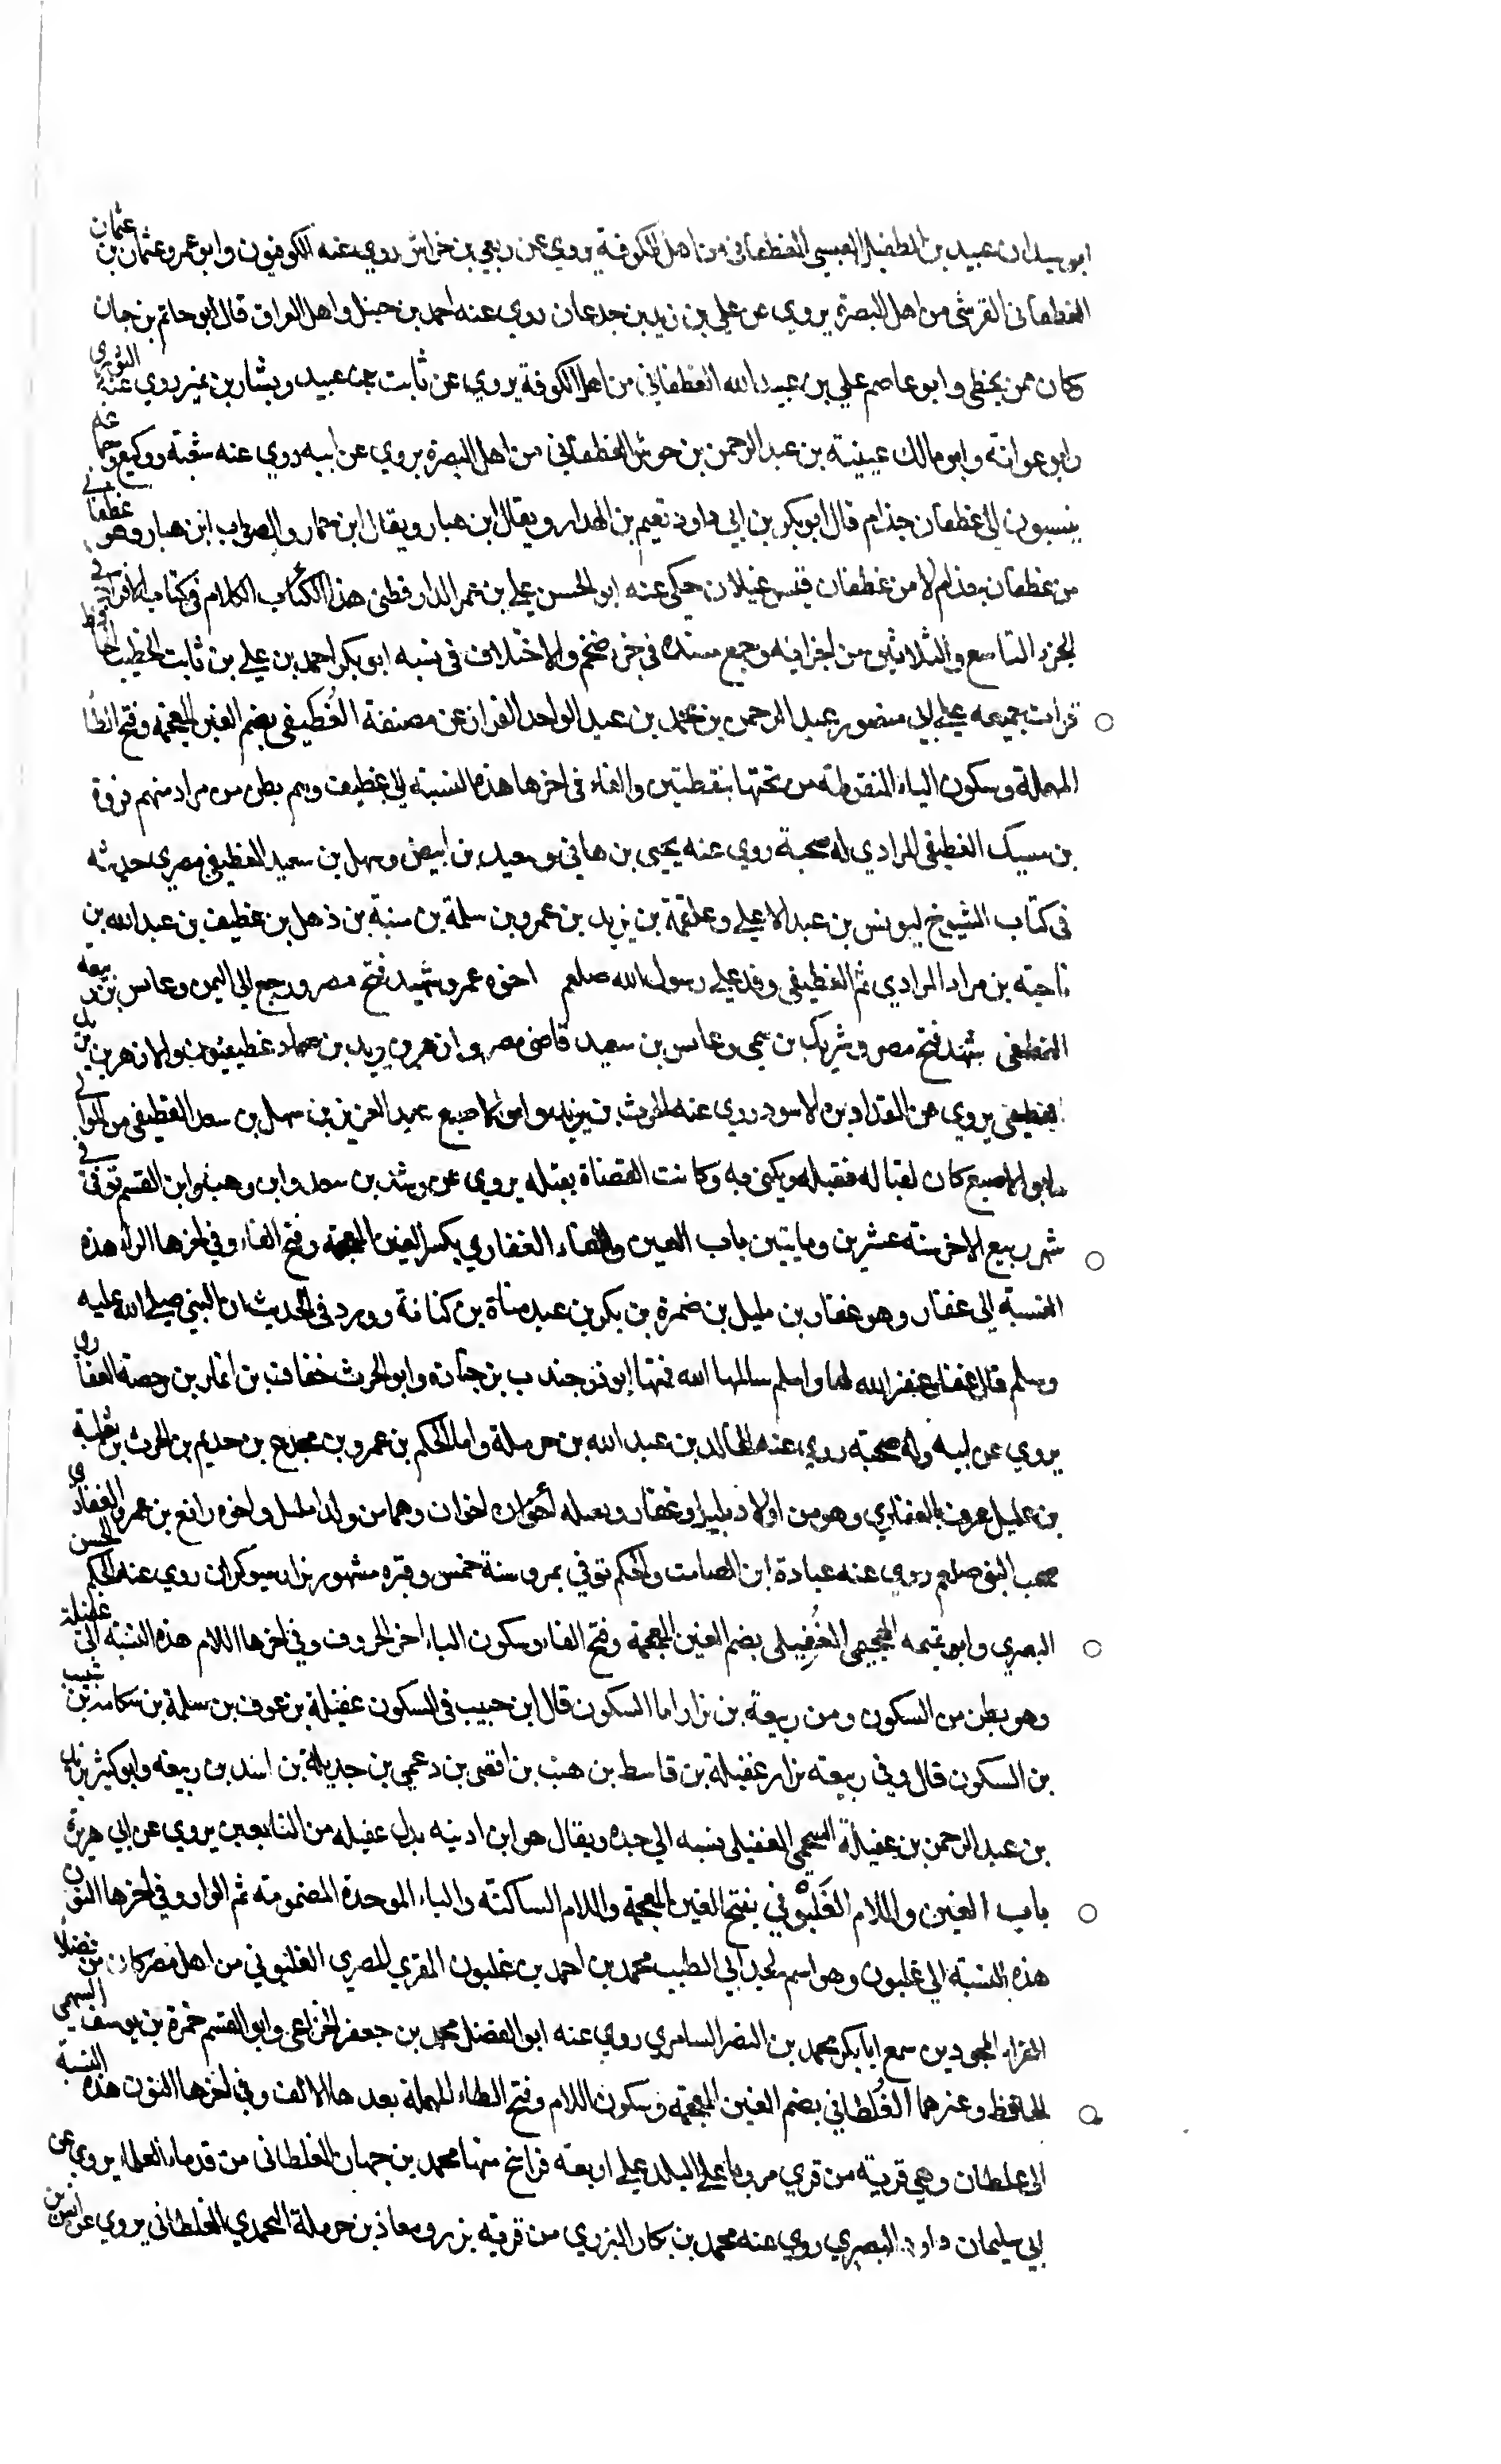 ابو سيدان عبيد بن الطفيل العبسي الغطفاني من اهل الكوفة يروي عن ربعي بن خراش روي عنه الكوفيون وابو عمرو عثمان بن عثمان
الغطفاني القرشي من اهل البصرة يروي عن علي بن زيد بن جدعان روي عنه احمد بن حنبل واهل العراق قال ابو حاتم بن حبان
وكان ممن يخطي وابو عاصم علي بن عبيد الله الغطفاني من اهل الكوفة يروي عن ثابت بن عبيد وبشار بن نمير روي عنه الثوري
وابو عوانة وابو مالك عيينة بن عبد الرحمن بن جوشن الغطفاني من اهل البصرة يروي عن ابيه روي عنه شعبة ووكيع
ينسبون الي غطفان جذام قال ابو بكر بن ابي داود نعيم بن الهدار ويقال ابن هبار ويقال ابن حمار والصواب ابن هبار وهو غطفاني
من غطفان جذام لا من غطفان قيس غيلان حكي عنه ابو الحسن علي بن عمر الدارقطني هذا الكلام في كتاب الافراد في
الجزء التاسع والثلاثين من افراده وجمع مسنده في جزء ضخم والاختلاف في نسبه ابو بكر احمد بن علي بن ثابت الخطيب الحافظ
قرات جميعه علي ابي منصور عبد الرحمن بن محمد بن عبد الواحد القزاز عن مصنفه الغُطَيفي بضم الغين المعجمة وفتح الطاء
المهملة وسكون الياء المنقوطة من تحتها بنقطتين والفاء في اخرها هذه النسبة الي غطيف وهم بطن من مراد منهم فروة
بن مسيك الغطيفي المرادي له صحبة روي عنه يحيى بن هاني وسعيد بن ابيض وسهل بن سعيد الغطيفي مصري حديثه
في كتاب الشيوخ ليونس بن عبد الاعلي وعلقمة بن يزيد بن عمرو بن سلمة بن منبه بن ذهل بن غطيف بن عبد الله بن
ناجية بن مراد المرادي ثم الغطيفي وفد علي رسول الله صلعم اخوه عمرو شهيد فتح مصر ورجع الي اليمن وعابس بن ربيعة
الغطيفي شهد فتح مصر وشريك بن سمي وعابس بن سعيد قاضي مصر
الغطيفي يروي عن المقداد بن الاسود روي عنه الحرث بن يزيد وابو الاصبع عبد العزيز بن سهل بن سعد الغطيفي من الموالي
وابو الاصبع كان لقبا له فقبله ويكنى به وكانت القضاة يقبله يروي عن رشد بن سعد وابن وهب وابن القسم توفي في
شهر ربيع الاخر سنة عشرين ومايتين باب الغين والفاء الغفاري بكسر الغين المعجمة وفتح الفاء وفي اخرها الراء هذه
النسبة الي غفار وهو غفار بن مليل بن ضمرة بن بكر بن عبد مناة بن كنانة وورد في الحديث ان النبي صلي الله عليه
وسلم قال غفار غفر الله لها واسلم سالمها الله فمنها ابو ذر جندب بن جنادة وابو الحرث خفاف بن ايماء بن رحضة الغفاري
يروي عن ابيه وله صحبة روي عنه خالد بن عبد الله بن حرملة واما الحكم بن عمرو بن مجدع بن حديم بن الحرث بن ثعلبة
بن مليل عرف بالغفاري وهو من اولاد مليل وغفار وثعيلة اخوان وهما من ولد مليل واخوه رافع بن عمرو الغفاري
صحب النبي صلعم روي عنه عبادة ابن الصامت والحكم توفي بمرو سنة خمس وقبره مشهور يزار روي عنه الحكم الحسن
البصري وابو تميمه الهجيمي الغُفَيلي بضم الغين المعجمة وفتح الفاء وسكون الياء اخر الحروف وفي اخرها اللام هذه النسبة الي غفيلة
وهو بطن من السكون ومن ربيعة بن نزار اما السكون قال ابن حبيب في السكون غفيلة بن عوف بن سلمة بن شكامة بن شبيب
بن السكون قال وفي ربيعة نزار غفيلة بن قاسط بن هنب بن افصي بن دعمي بن جديلة بن اسد بن ربيعه وابو كثير يزيد
بن عبد الرحمن بن غفيلة السحيمي الغفيلي نسبه الي جده ويقال هو ابن اذينه بدل غفيله من التابعين يروي عن ابي هريرة
باب الغين واللام الغَلْبُوني بفتح الغين المعجمة واللام الساكنة والباء الموحدة المضمومة ثم الواو وفي اخرها النون
هذه النسبة الي غلبون وهو اسم لجد ابي الطيب محمد بن احمد بن غلبون المقري المصري الغلبوني من اهل مصر كان من فضلاء
القراء المجودين سمع ابا بكر محمد بن النصر السامري روي عنه ابو الفضل محمد بن جعفر الخزاعي وابو القسم حمزة بن يوسف السهمي
الحافظ وغيرهما الغُلْطاني بضم الغين المعجمة وسكون اللام وفتح الطاء المهملة بعدها الالف وفي اخرها النون هذه النسبة
الي غلطان وهي قرية من قري مرو باعلي البلد علي اربعة فراسخ منها محمد بن جهان الغلطاني من قدماء العلماء يروي عن
ابي سليمان داود البصري روي عنه محمد بن بكار البزوي من قرية بزرو ومعاذ بن حرملة اليحمدي الغلطاني يروي عن انس بن